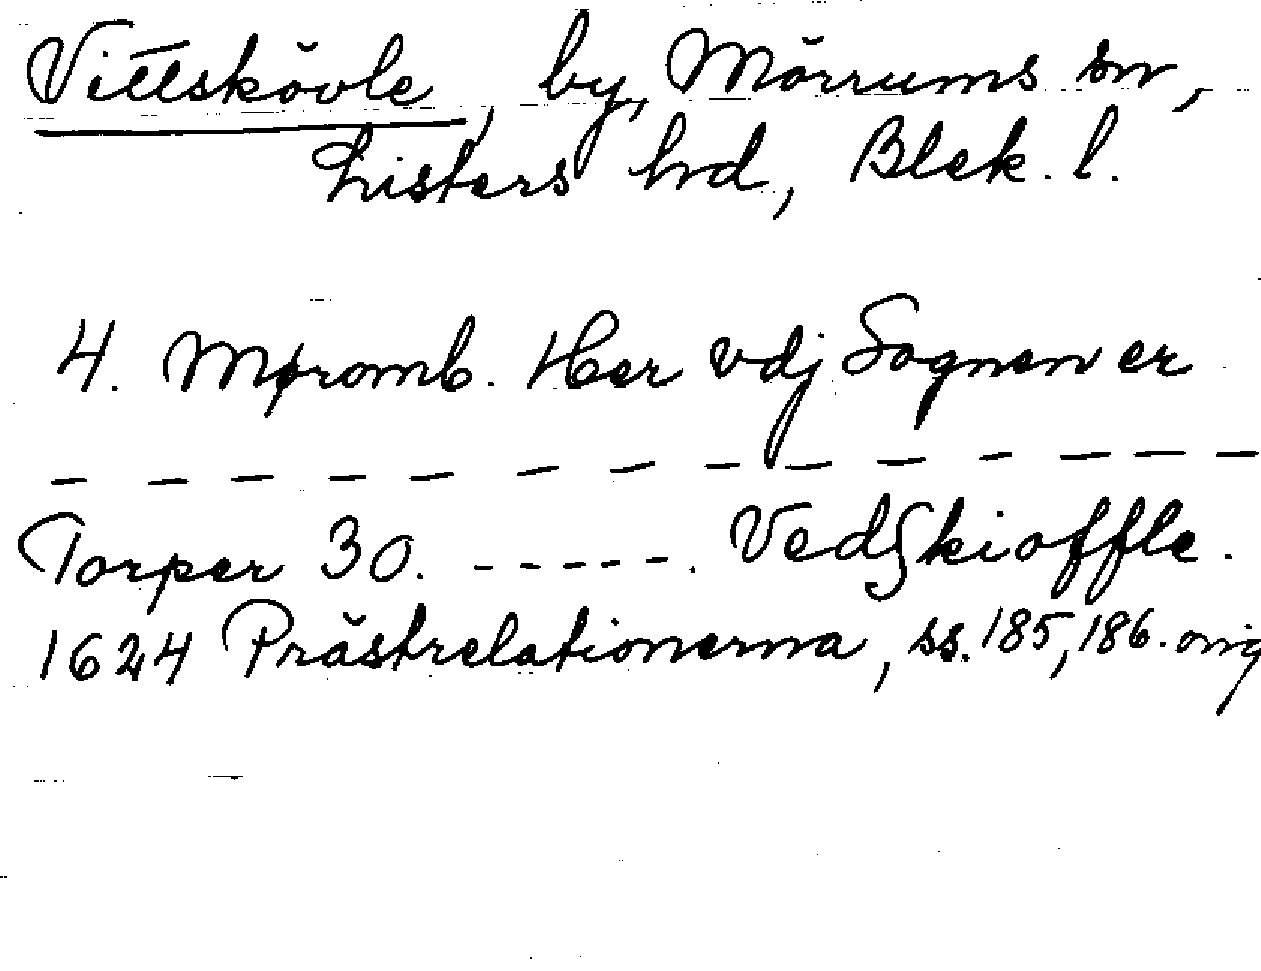 Vittskövle, by, Mörrums sn,
Listers hd, Blek. l.
4. Møromb. Her vdj Sognen er
— — — — — — — — — — — — — —
Torper 30. - - - - - . Vedſkioffle.
1624 Prästrelationerna, ss. 185, 186. orig